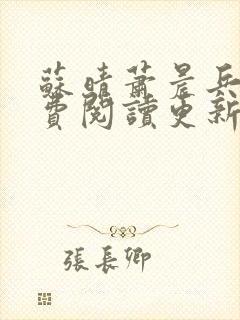 蘇晴蕭晨兵
費閱讀更新
張長卿